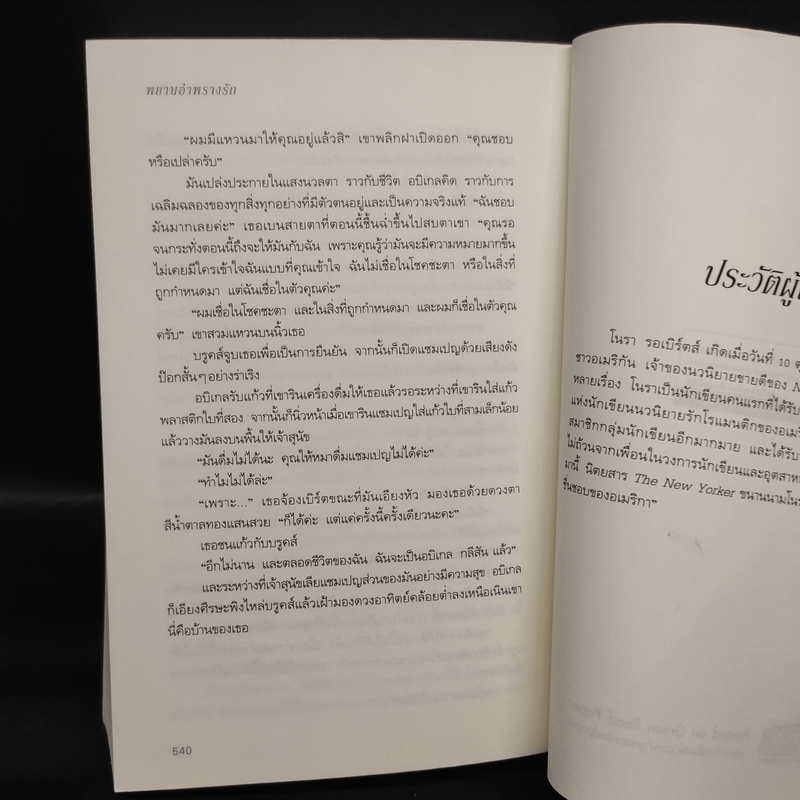 พยานอำพรางรัก
“ผมมีแหวนมาให้คุณอยู่แล้วสิ” เขาพลิกฝาเปิดออก “คุณชอบ
หรือเปล่าครับ”
มันเปล่งประกายในแสงนวลตา ราวกับชีวิต อบิเกลคิด ราวกับการ
เฉลิมฉลองของทุกสิ่งทุกอย่างที่มีตัวตนอยู่และเป็นความจริงแท้ “ฉันชอบ
มันมากเลยค่ะ” เธอเบนสายตาที่ตอนนี้ชื้นฉ่ำขึ้นไปสบตาเขา “คุณรอ
จนกระทั่งตอนนี้ถึงจะให้มันกับฉัน เพราะคุณรู้ว่ามันจะมีความหมายมากขึ้น
ไม่เคยมีใครเข้าใจฉันแบบที่คุณเข้าใจ ฉันไม่เชื่อในโชคชะตา หรือในสิ่งที่
ถูกกำหนดมา แต่ฉันเชื่อในตัวคุณค่ะ”
“ผมเชื่อในโชคชะตา และในสิ่งที่ถูกกำหนดมา และผมก็เชื่อในตัวคุณ
ครับ” เขาสวมแหวนบนนิ้วเธอ
บรูคส์จูบเธอเพื่อเป็นการยืนยัน จากนั้นก็เปิดแชมเปญด้วยเสียงดัง
ป๊อกสั้นๆ อย่างร่าเริง
อบิเกลรับแก้วที่เขารินเครื่องดื่มให้เธอแล้วรอระหว่างที่เขารินใส่แก้ว
พลาสติกใบที่สอง จากนั้นก็นิ่วหน้าเมื่อเขารินแชมเปญใส่แก้วใบที่สามเล็กน้อย
แล้ววางมันลงบนพื้นให้เจ้าสุนัข
“มันดื่มไม่ได้นะ คุณให้หมาดื่มแชมเปญไม่ได้ค่ะ”
“ทำไมไม่ได้ล่ะ”
“เพราะ...” เธอจ้องเบิร์ตขณะที่มันเอียงหัว มองเธอด้วยดวงตา
สีน้ำตาลทองแสนสวย “ก็ได้ค่ะ แต่แค่ครั้งนี้ครั้งเดียวนะคะ”
เธอชนแก้วกับบรูคส์
“อีกไม่นาน และตลอดชีวิตของฉัน ฉันจะเป็นอบิเกล กลีสัน แล้ว”
และระหว่างที่เจ้าสุนัขเลียแชมเปญส่วนของมันอย่างมีความสุข อบิเกล
ก็เอียงศีรษะพิงไหล่บรูคส์แล้วเฝ้ามองดวงอาทิตย์คล้อยต่ำลงเหนือเนินเขา
นี่คือบ้านของเธอ
540
ประวัติผู้
โนรา รอเบิร์ตส์ เกิดเมื่อวันที่ 10 ตุ
ชาวอเมริกัน เจ้าของนวนิยายขายดีของ N
หลายเรื่อง โนราเป็นนักเขียนคนแรกที่ได้รับ
แห่งนักเขียนนวนิยายรักโรแมนติกของอเมริ
สมาชิกกลุ่มนักเขียนอีกมากมาย และได้รับ
ไม่ถ้วนจากเพื่อนในวงการนักเขียนและอุตสาห
มานี้ นิตยสาร The New Yorker ขนานนามโนร
ชื่นชอบของอเมริกา”